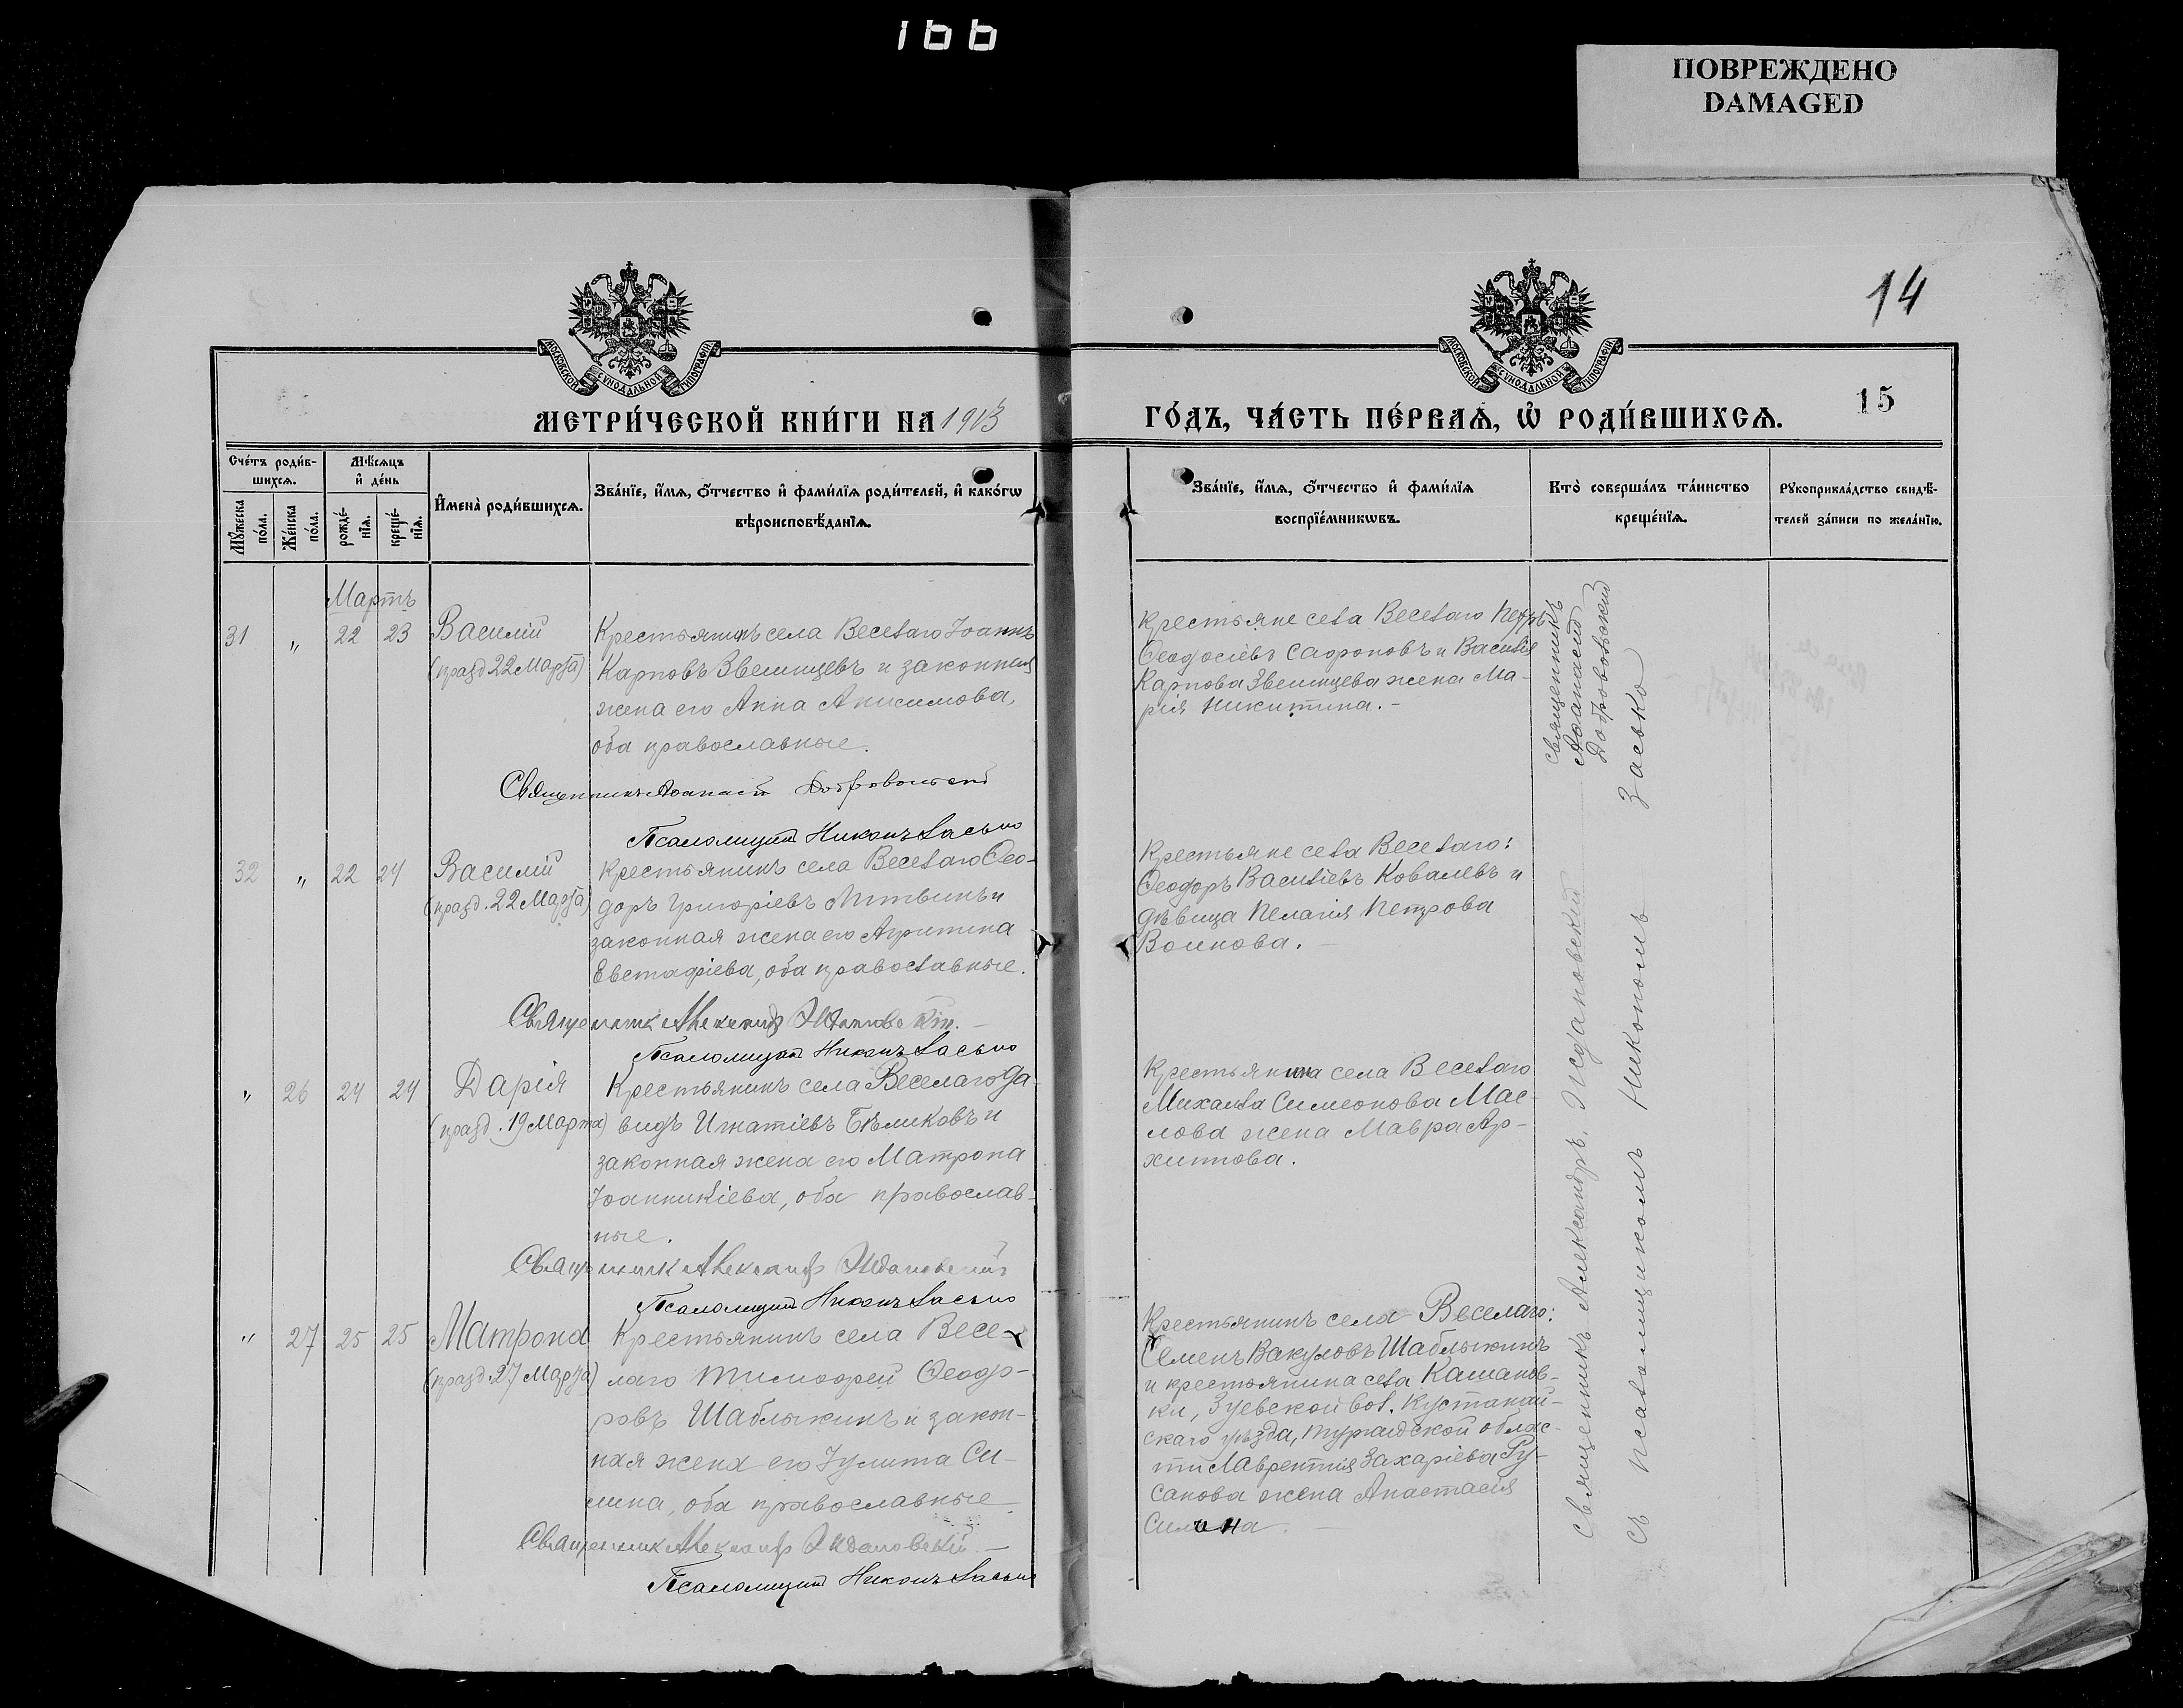 166
ПОВРЕЖДЕНО
DAMAGED
14
15
МОСКОВСКОЙ СУНОДАЛЬНОЙ ТИПОГРАФИИ
МОСКОВСКОЙ СУНОДАЛЬНОЙ ТИПОГРАФИИ
МЕТРИ́ЧЕСКОЙ КНИ́ГИ НА 1913
ГО́ДЪ, ЧА́СТЬ ПЕ́РВАѦ, Ѡ҆ РОДИ́ВШИХСѦ.
Сче́тъ роди́в-
шихсѧ.
Мѣ́сѧцъ
и҆ де́нь
Мꙋ́жеска
по́ла.
Же́нска
по́ла.
рожде́-
нїѧ.
креще́-
нїѧ.
И҆мена̀ роди́вшихсѧ.
Зва́нїе, и҆́мѧ, ѻ҆́тчество и҆ фами́лїѧ роди́телей, и҆ како́гѡ
вѣроисповѣ́данїѧ.
Зва́нїе, и҆́мѧ, ѻ҆́тчество и҆ фами́лїѧ
воспрїе́мникѡвъ.
Кто̀ соверша́лъ та́инство
креще́нїѧ.
Рꙋкоприкла́дство свидѣ́-
телей за́писи по жела́нїю.
Мартъ
31 " 22 23 Василій
(празд 22 Марта)
Крестьянинъ села Веселаго Іоаннъ
Карповъ Звелинцевъ и законная
жена его Анна Анисимова,
оба православные.
Священникъ Аѳанасій Добровольскій
Псаломщикъ Никонъ Засько
Крестьяне села Веселаго Петръ
Ѳеодосіевъ Сафроновъ и Василія
Карпова Звелинцева жена Ма-
рія Никитина.-
Священникъ
Аѳанасій
Добровольскій
32 " 22 24 Василій
(празд. 22 Марта)
Крестьянинъ села Веселаго Ѳео-
доръ Григоріевъ Литвинъ и
законная жена его Агрипина
Евстафіева, оба православные.
Священникъ Александръ Ждановскій.-
Псаломщикъ Никонъ Засько
Крестьяне села Веселаго:
Ѳеодоръ Василіевъ Ковалевъ и
дѣвица Пелагія Петрова
Воинова.-
" 26 24 24 Дарія
(празд. 19 Марта)
Крестьянинъ села Веселаго Да-
видъ Игнатіевъ Бѣликовъ и
законная жена его Матрона
Іоанникіева, оба православ-
ные.
Священникъ Александръ Ждановскій
Псаломщикъ Никонъ Засько
Крестьянина села Веселаго
Михаила Симеонова Мас-
лова жена Мавра Ар-
хипова.
" 27 25 25 Матрона
(празд. 27 Марта)
Крестьянинъ села Весе-
лаго Тимофей Ѳеодо-
ровъ Шаблыкинъ и закон-
ная жена его Іулита Си-
лина, оба православные
Священникъ Александръ Ждановскій.-
Псаломщикъ Никонъ Засько
Крестьянинъ села Веселаго:
Семенъ Вакуловъ Шаблыкинъ
и крестьянина села Кашанов-
ки, Зуевской вол. Кустанай-
скаго уѣзда, Тургайской облас-
ти Лаврентія Захаріева Ру-
санова жена Анастасія
Силина.-
Священникъ Александръ Ждановскій
съ псаломщикомъ Никономъ Засько